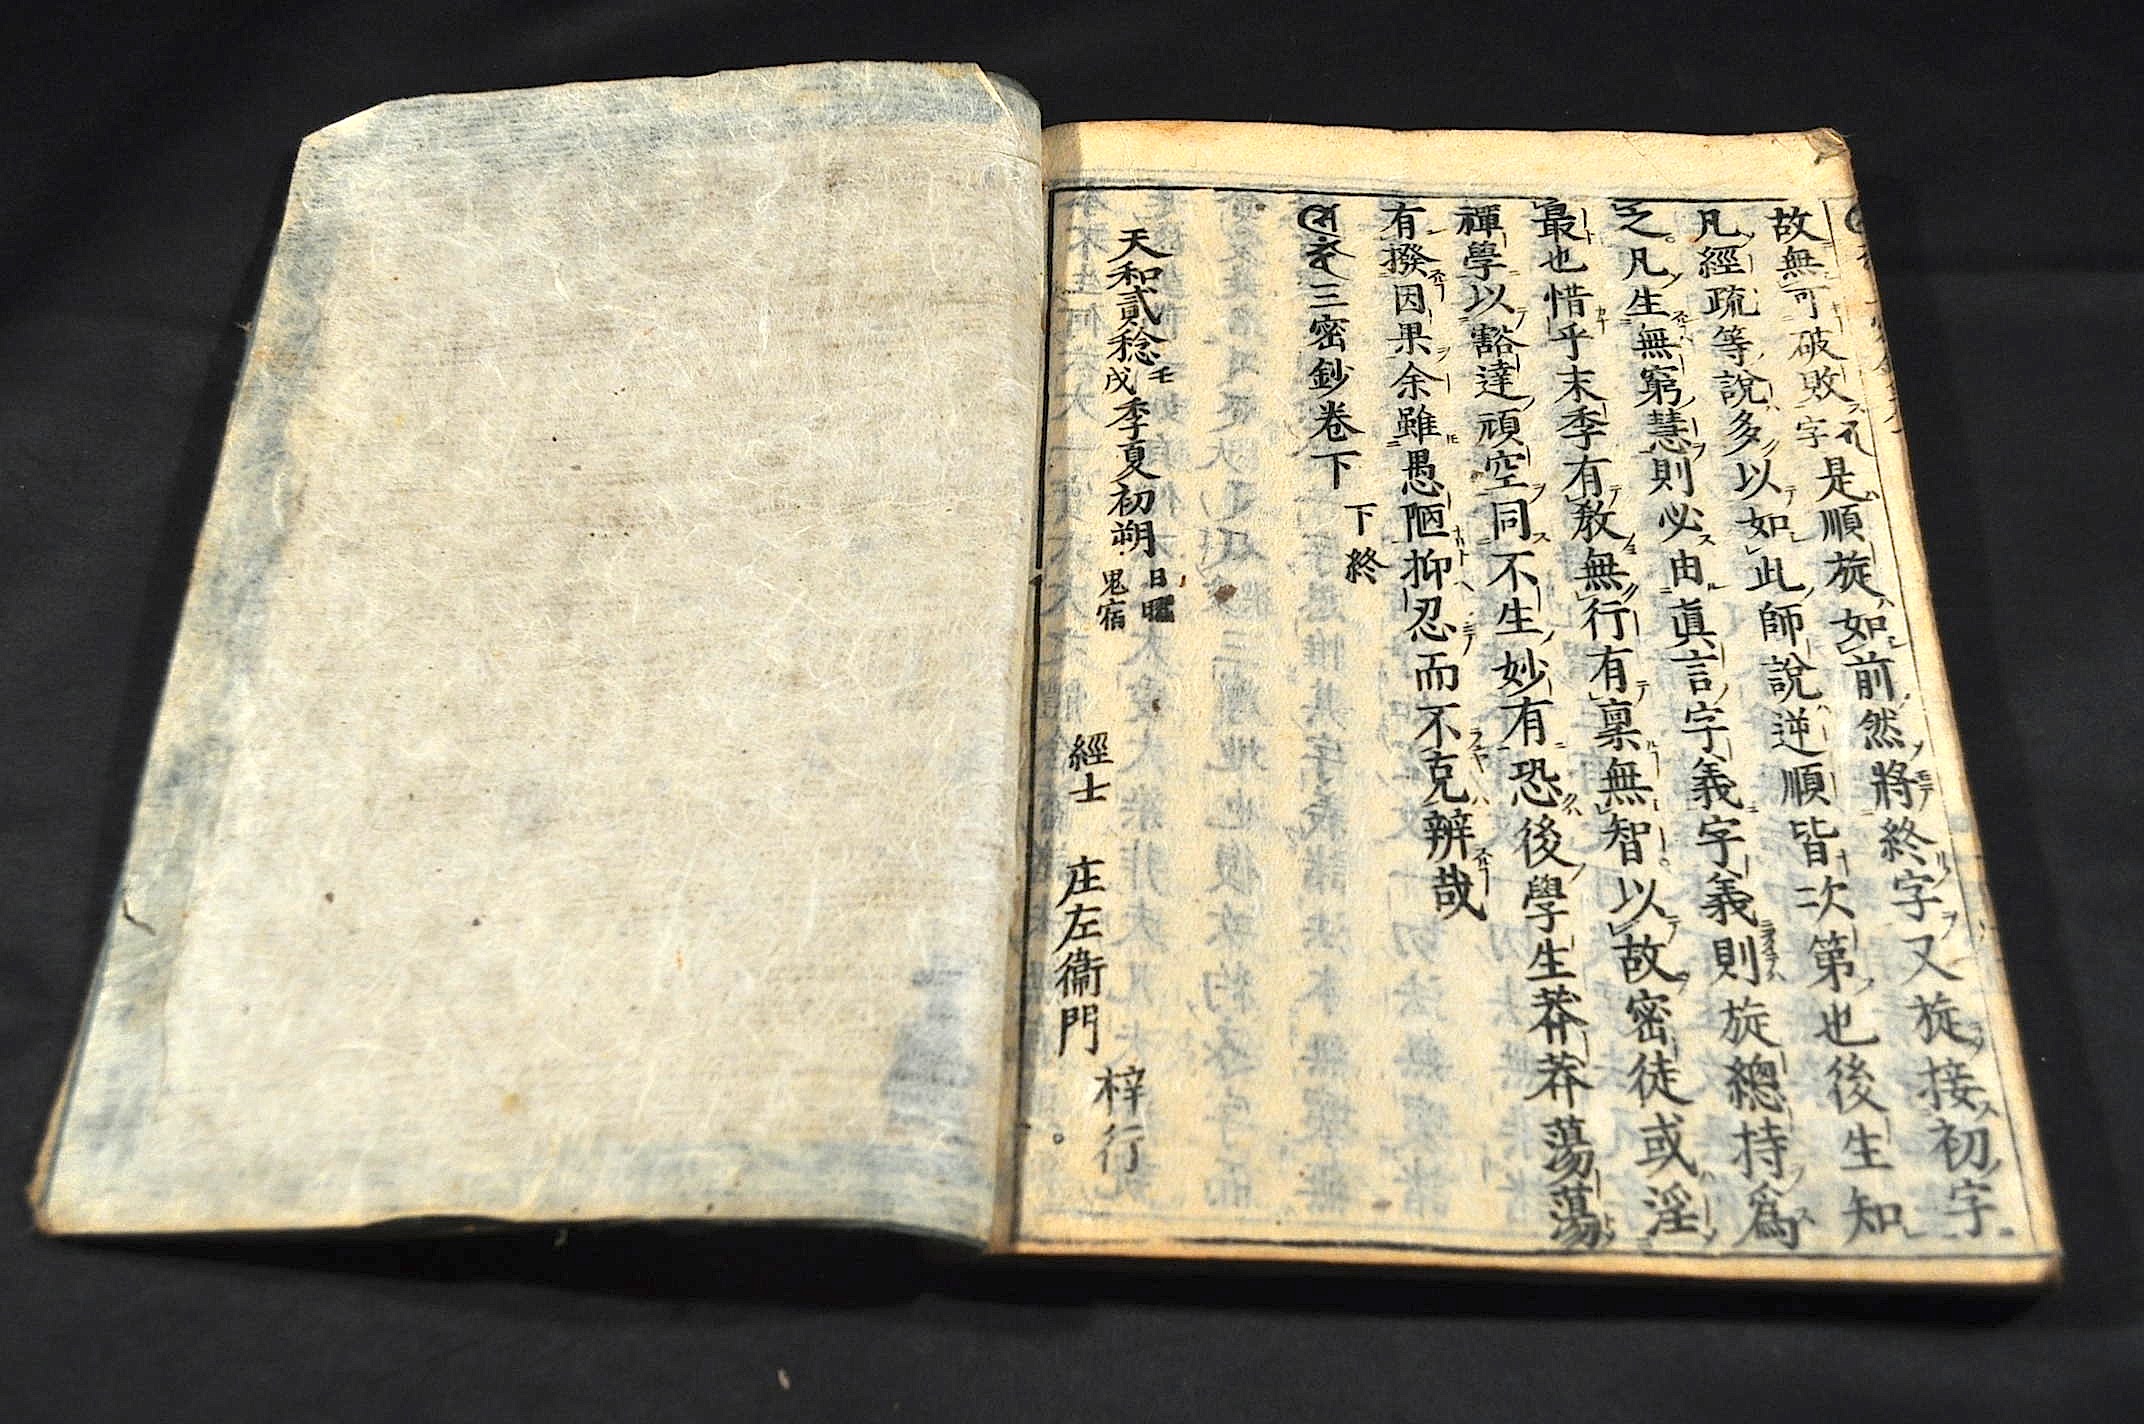 故無可破敗字是順旋如前然將終字又旋接初字
凡經疏等說多以如此師說逆順皆次第也後生知
之凡生無窮慧則必由眞言字義字義則旋總持爲
最也惜乎末季有敎無行有稟無智以故密徒或淫
禪學以豁達頑空同不生妙有恐後學生莽莽蕩蕩
有撥因果余雖愚陋抑忍而不克辨哉
三密鈔卷下
下終
天和貳稔壬戌季夏初朔日曜鬼宿
經士 庄左衞門 梓行